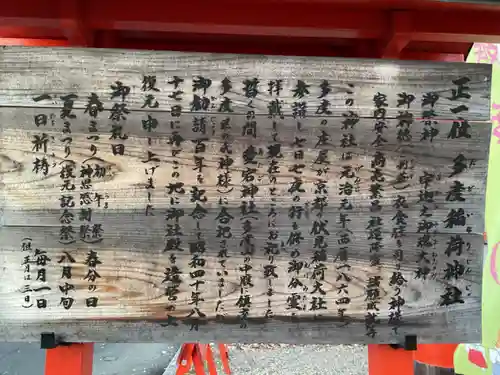 正一位 多度稲荷神社
御祭神 宇迦之御魂大神
御神徳 衣食住を司り給う神様で
家内安全 商売繁昌
この神社は元治元年(西暦一八六四年)
多度の庄屋が京都の伏見稲荷大社に
参詣し七日七夜の行を修め御分霊を
拝戴して現在のところにお祀り致しました
暫くの間 愛宕神社(多度の中腹鎮守の
多度系の神様)に合祀されていました
御勧請百年を記念し昭和四十年八月
十七日に浄らかの地に御社殿を造営の上
復元申し上げました
御祭礼日
春まつり(初午祭 神恩感謝祭)春分の日
夏まつり(復元記念祭)八月中旬
一日祈祷 毎月一日
(但 正月は三日)